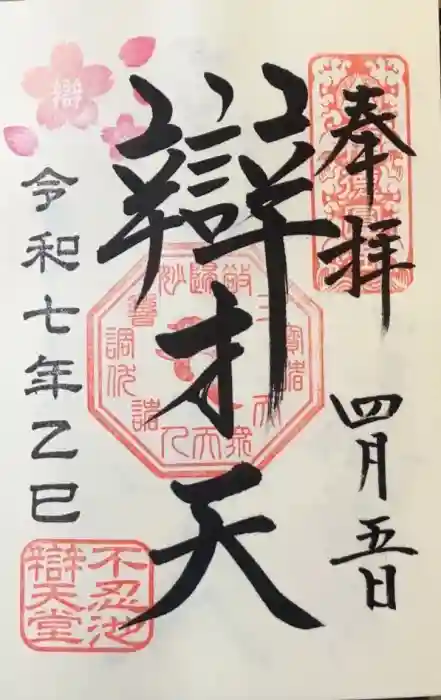 奉拝
四月五日
辯才天
令和七年乙巳
不忍池
辯天堂
辯